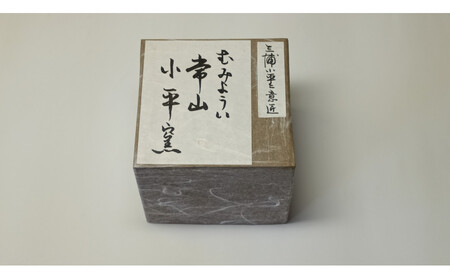 三浦小平之意匠
むみようい
常山
小平窯